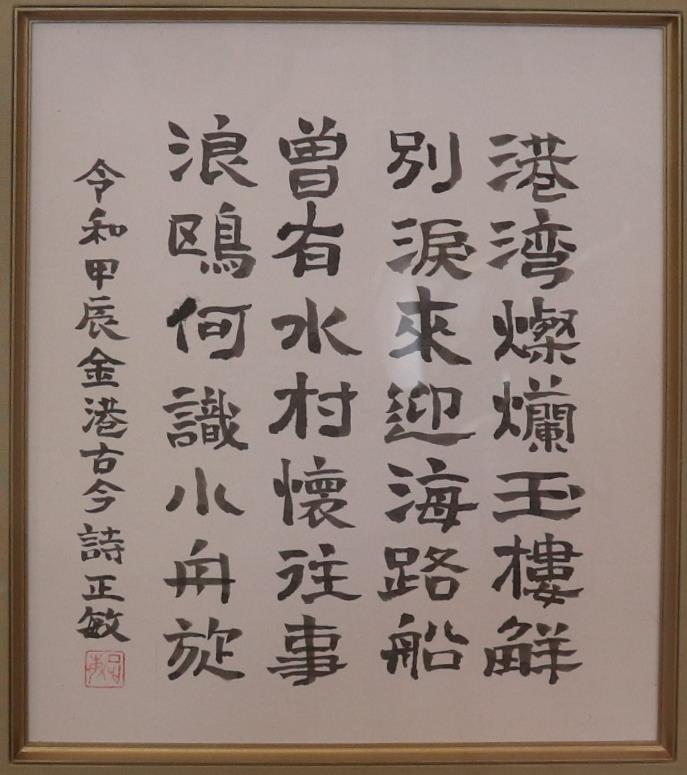 港湾燦爛玉樓鮮
別淚來迎海路船
曽有水村懷往事
浪鴎何識小舟旋
令和甲辰金港古今詩正敏